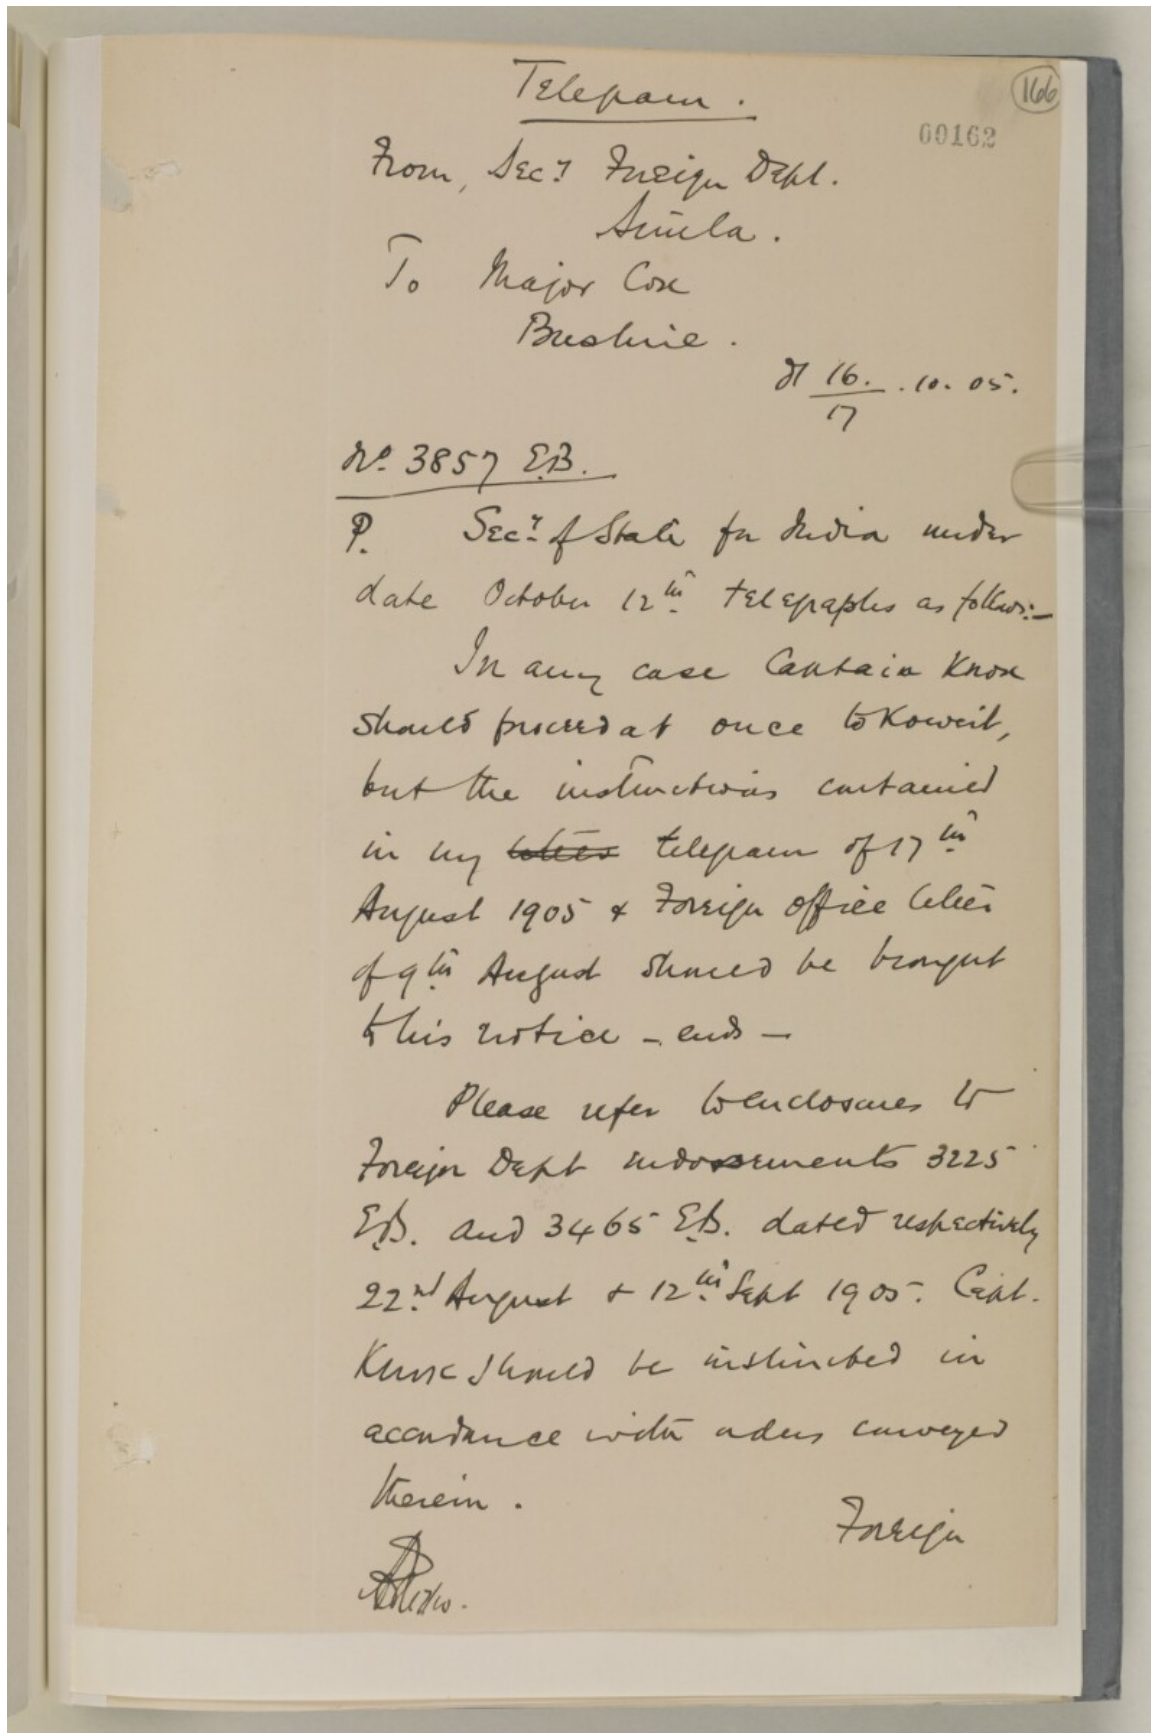 166
00162
Telegram.
From, Secy Foreign Dept.
Simla.
To Major Cox
Bushire.
dt 16/17.10.05.
No. 3857 E.B.
P. Secy of State for India under
date October 12th telegraphs as follows:-
In any case Captain Knox
should proceed at once to Koweit,
but the instructions contained
in my letter telegram of 17th
August 1905 & Foreign Office letter
of 9th August should be brought
to his notice - ends -
Please refer to enclosures to
Foreign Dept endorsements 3225
E.B. and 3465 E.B. dated respectively
22nd August & 12th Sept 1905. Capt.
Knox should be instructed in
accordance with orders conveyed
therein.
Foreign